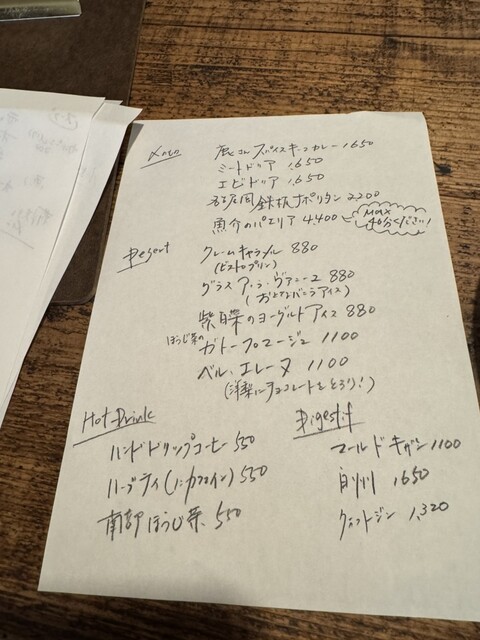 スパイスキーマカレー 1650
ミートドリア 1,650
エビドリア 1,650
名古屋風 鉄板ナポリタン 2200
魚介のパエリア 4,400
Max 40分ください!
Desert
クレームキャラメル 880
(ビストロプリン)
グラス ア・ラ・ヴァニーユ 880
(おとなバニラアイス)
のヨーグルトアイス 880
ほうじ茶の
ガトーフロマージュ 1100
ベル・エレーヌ 1100
(洋梨にチョコレートをとろり!)
Hot Drink
ハンドドリップコーヒー 550
ハーブティ(ノンカフェイン) 550
南部ほうじ茶 550
Digestif
1100
白州 1650
クラフトジン 1,320